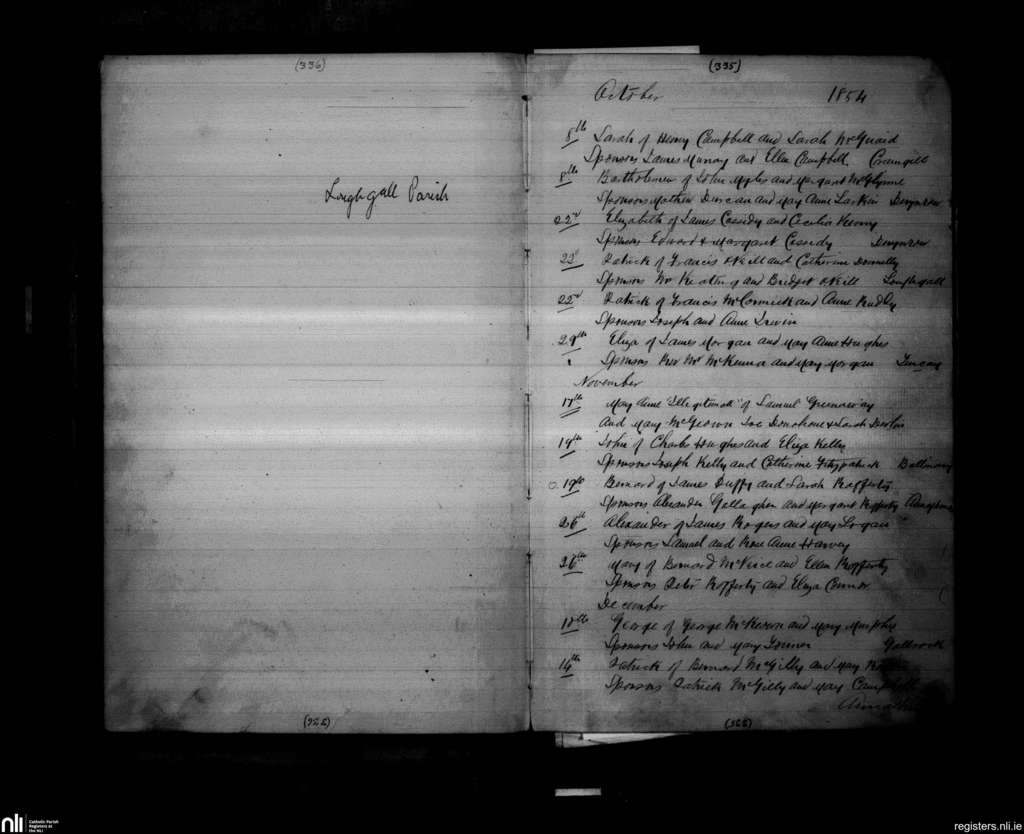 (336)
Loughgall Parish
(335)
October 1854
8th Sarah of Henry Campbell and Sarah McQuaid
Sponsors James Murray and Ellen Campbell.
8th Bartholomew of John Myles and Margaret McGlynne
Sponsors Mathew Duncan and May Anne Larkin
22nd Elizabeth of James Cassidy and Cecilia Kenny
Sponsors Edward & Margaret Cassidy
22d Patrick of Francis O'Neill and Catherine Donnelly
Sponsors Wm Keating and Bridget O'Neill Loughgall
22nd Patrick of Francis McCormick and Anne
Sponsors Joseph and Anne Irwin
29th Eliza of James Morgan and May Anne Hughes
Sponsors Rev Mr McKenna and May Morgan
November
17th May Anne "Illegitimate" of Samuel Greenaway
and Mary McGeown Joe Donohoue & Sarah Devlin
19th John of Charles Hughes and Eliza Kelly
Sponsors Joseph Kelly and Catherine Fitzpatrick
19th Bernard of James Duffy and Sarah Rafferty
Sponsors Alexander Gallagher and Margaret Rafferty
26th Alexander of James Rogers and May Logan
Sponsors Samuel and Rose Anne Harvey
26th Mary of Bernard and Ellen Rafferty
Sponsors Peter Rafferty and Eliza Connor
December
10th George of George McKeown and Mary Murphy
Sponsors John and May
14th Patrick of Bernard McGilly and May
Sponsors Patrick McGilly and May Campbell
nli
Catholic Parish
Registers at
the NLI
registers.nli.ie